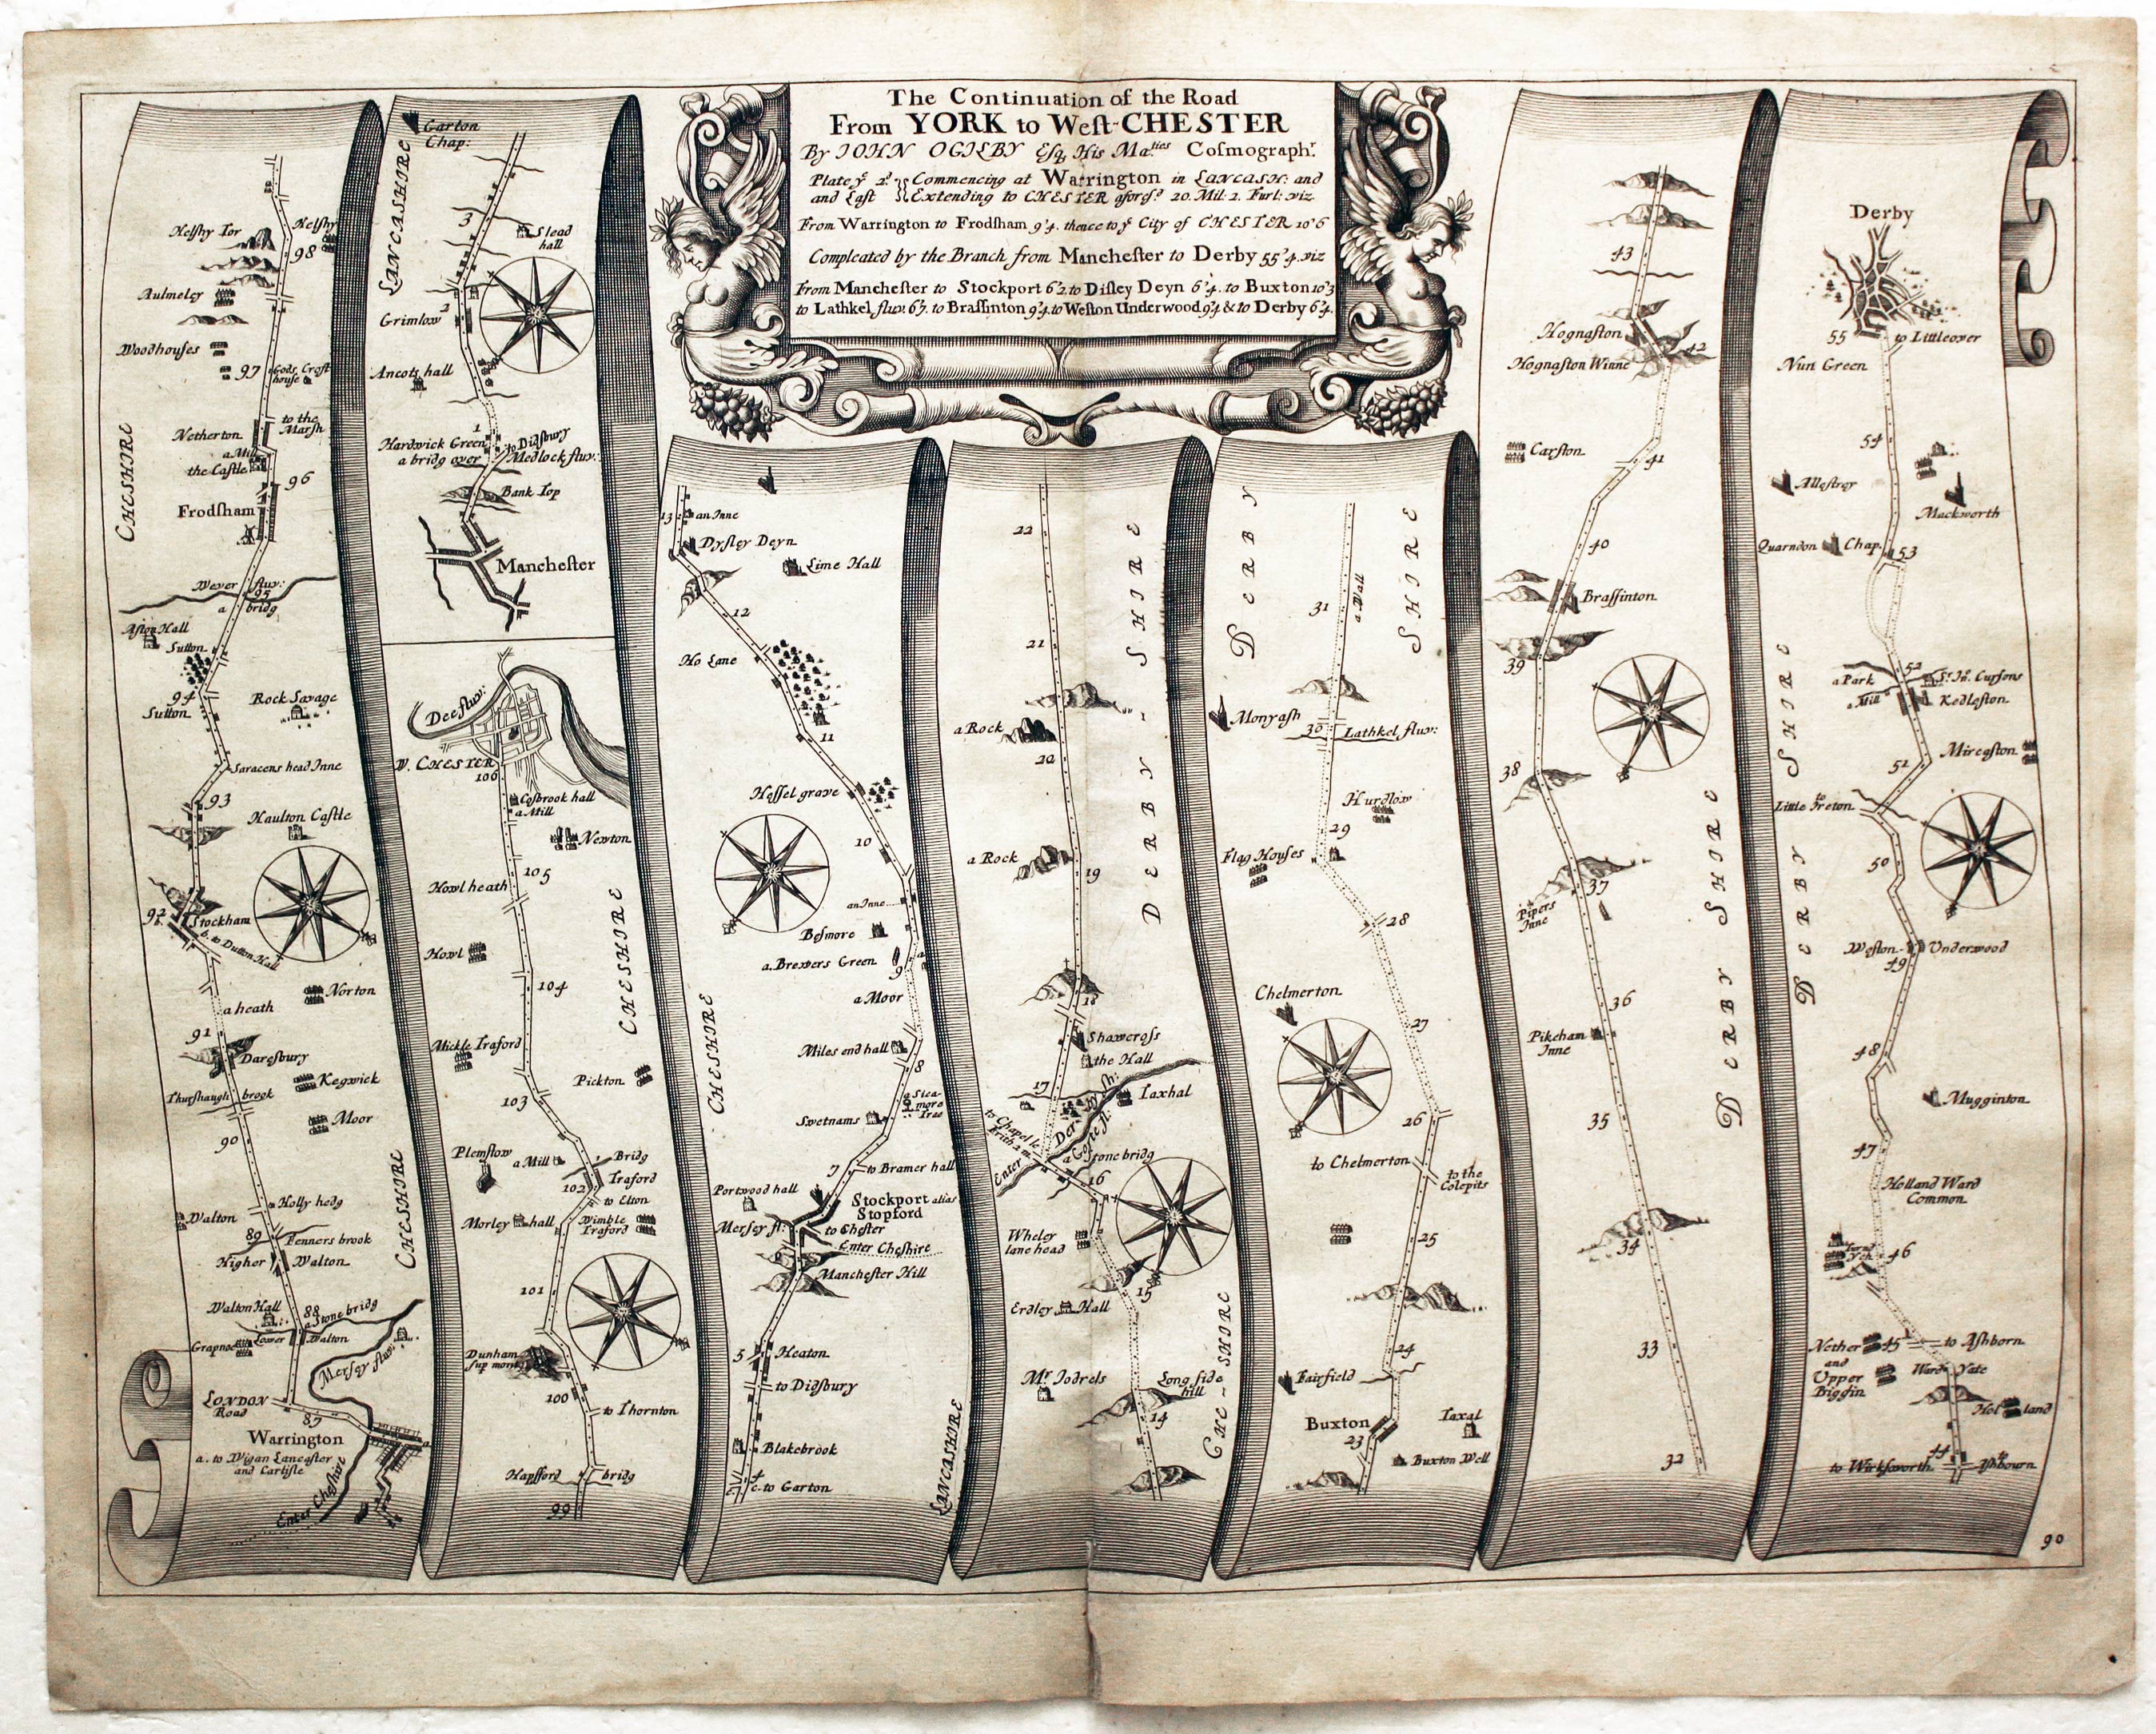 The Continuation of the Road
From YORK to West-CHESTER
By JOHN OGILBY Esq. His Ma.ties Cosmograph.r
Plate y.e 2.d Commencing at Warrington in LANCASH: and
and Last Extending to CHESTER afores.d 20. Mil: 2. Furl: viz.
From Warrington to Frodsham 9'4. thence to y.e City of CHESTER 10'6
Compleated by the Branch from Manchester to Derby 55'4. viz
From Manchester to Stockport 6'2. to Disley Deyn 6'4. to Buxton 10'3
to Lathkel fluv. 6'7. to Brassinton 9'4. to Weston Underwood 9'4 & to Derby 6'4.
Helsby Tor
Helsby
98
Aulmeley
Woodhouses
97
Gods Croft
house
to the
Marsh
Netherton
a Mill
the Castle
96
CHESHIRE
Frodsham
Wever fluv:
95
a bridg
Aston Hall
Sutton
94
Sutton
Rock Savage
Saracens head Inne
93
Haulton Castle
92
Stockham
b. to Dutton Hall
Norton
a heath
91
Daresbury
Kegwick
Thurshaugh brook
Moor
90
Holly hedg
Walton
89
Fenners brook
Higher Walton
CHESHIRE
Walton Hall
88
a Stone bridg
Lower Walton
Mersey fluv:
LONDON
Road
87
Warrington
a. to Wigan Lancaster
and Carlisle
Enter Cheshire
Garton
Chap:
LANCASHIRE
3
Slead
hall
2
Grimlow
Ancots hall
1
Hardwick Green
to Didsbury
a bridg over
Medlock fluv:
Bank Top
Manchester
Dee fluv:
W. CHESTER
106
Cosbrook hall
a Mill
Newton
105
Howl heath
CHESHIRE
Howl
104
Mickle Traford
Pickton
103
Plemstow
a Mill
Bridg
Traford
102
to Elton
Morley hall
Wimble
Traford
101
Dunham
sup mont
100
to Thornton
Hapsford bridg
99
13
an Inne
Dysley Deyn
Lime Hall
12
Ho Lane
11
Hessel grave
10
an Inne
Besmore
a. Brewers Green
9
a Moor
CHESHIRE
Miles end hall
8
Sica-
more
Tree
Swetnams
7
to Bramer hall
Portwood hall
Stockport alias
Stopford
Mersey fl:
to Chester
Enter Cheshire
Manchester Hill
5
Heaton
to Didsbury
Blakebrook
4
c. to Garton
LANCASHIRE
22
DERBY-SHIRE
21
a Rock
20
a Rock
19
18
Shawcross
the Hall
17
Taxhal
to Chapel le
Frith 2 m
Enter Derbysh:
Goyte fl.
a Stone bridg
16
Wheler
lane head
15
Erdley Hall
CHE-SHIRE
Mr. Jodrels
Long side
hill
14
DERBY SHIRE
31
a Wall
Monyash
30
Lathkel fluv:
Hurdlow
29
Flag Houses
28
Chelmerton
27
26
to Chelmerton
to the
Colepits
25
24
Fairfield
Buxton
Taxal
23
Buxton Well
43
Hognaston
42
Hognaston Winne
Carston
41
40
Brassinton
39
38
37
Pipers
Inne
DERBY SHIRE
36
Pikeham
Inne
35
34
33
32
Derby
55
to Littleover
Nun Green
54
Allestrey
Mackworth
Quarndon Chap.
53
52
a Park
Sr. Jn. Cursons
a Mill
Kedleston
DERBY SHIRE
Mircaston
51
to
Little Ireton
50
Weston-Underwood
49
48
Mugginton
47
Holland Ward
Common
46
Nether
and
Upper
Biggin
45
to Ashborn
Ward Yate
Holland
44
to Wirksworth
to
Ashbourn
90